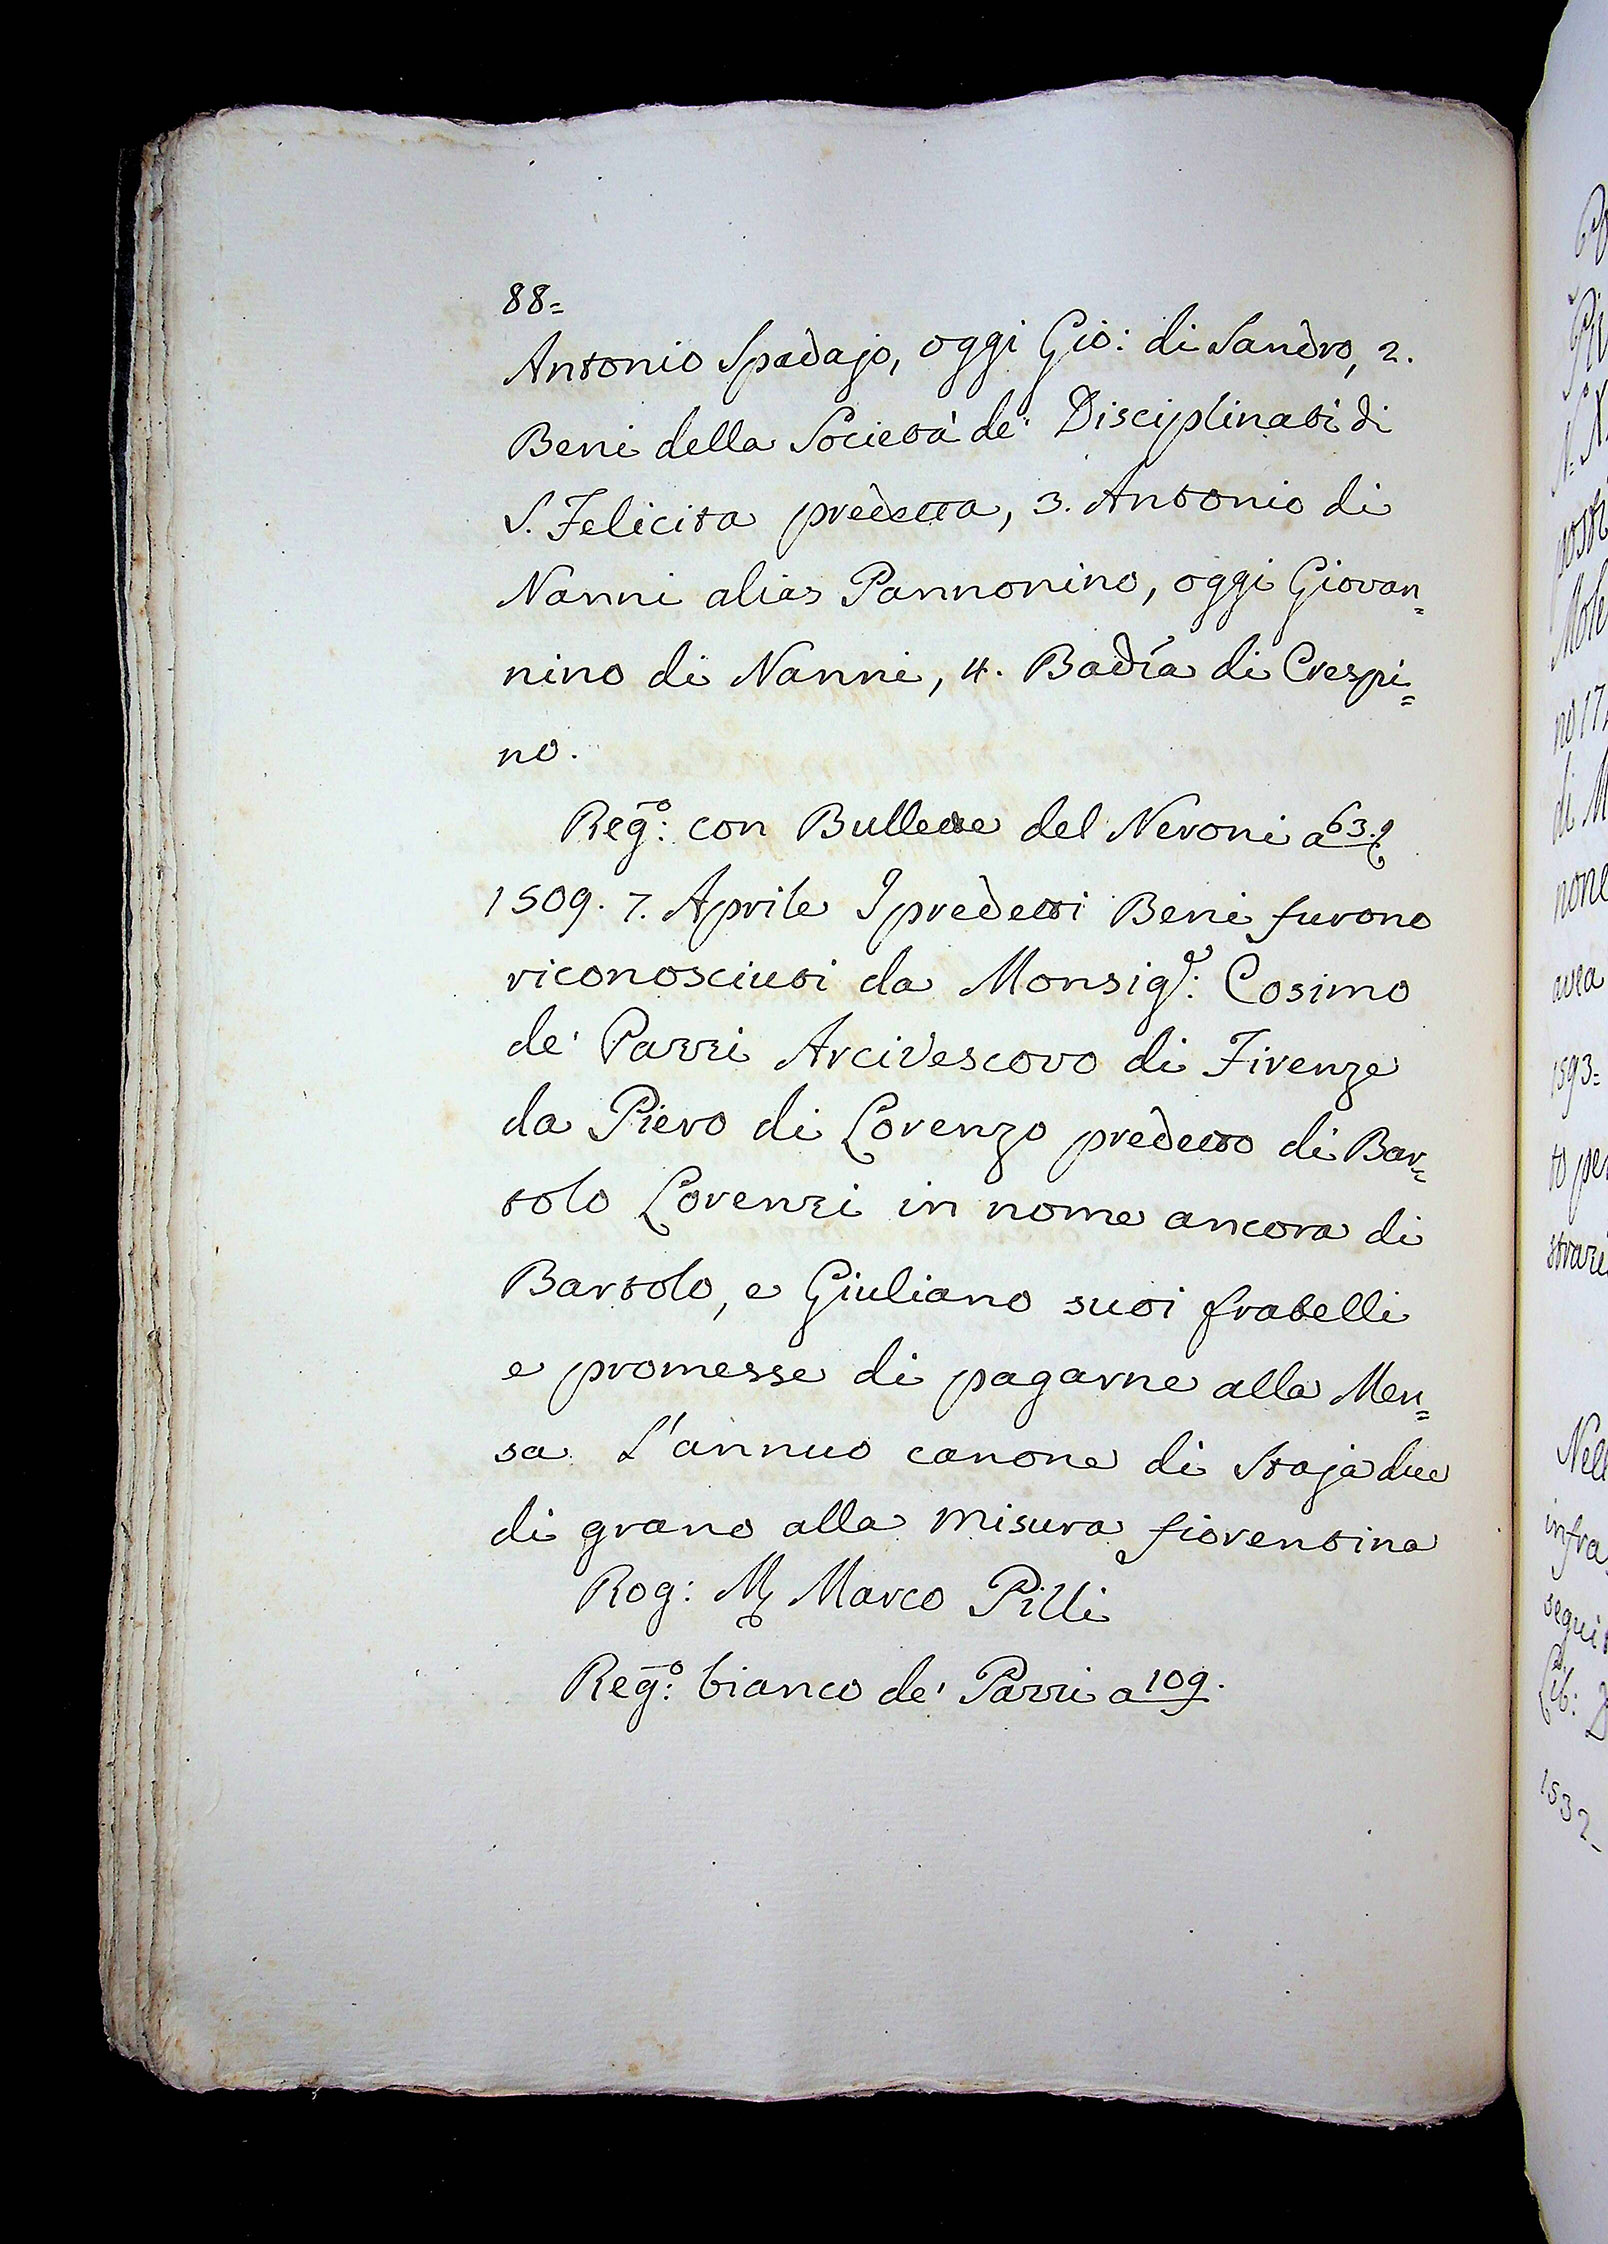 88=
Antonio Spadajo, oggi Gio: di Sandro, 2.
Beni della Società de' Disciplinati di
S. Felicita predetta, 3. Antonio di
Nanni alias Pannonino, oggi Giovan=
nino di Nanni, 4. Badía di Crespi=
no.
Reg.º: con Bullette del Neroni a 63.
1509. 7. Aprile I predetti Beni furono
riconosciuti da Monsig.r: Cosimo
de' Pazzi Arcivescovo di Firenze
da Piero di Lorenzo predetto di Bar=
tolo Lorenzi in nome ancora di
Bartolo, e Giuliano suoi fratelli
e promesse di pagarne alla Men=
sa L'annuo canone di Staja due
di grano alla misura fiorentina
Rog: M. Marco Pilli
Reg.º: bianco de' Pazzi a 109.